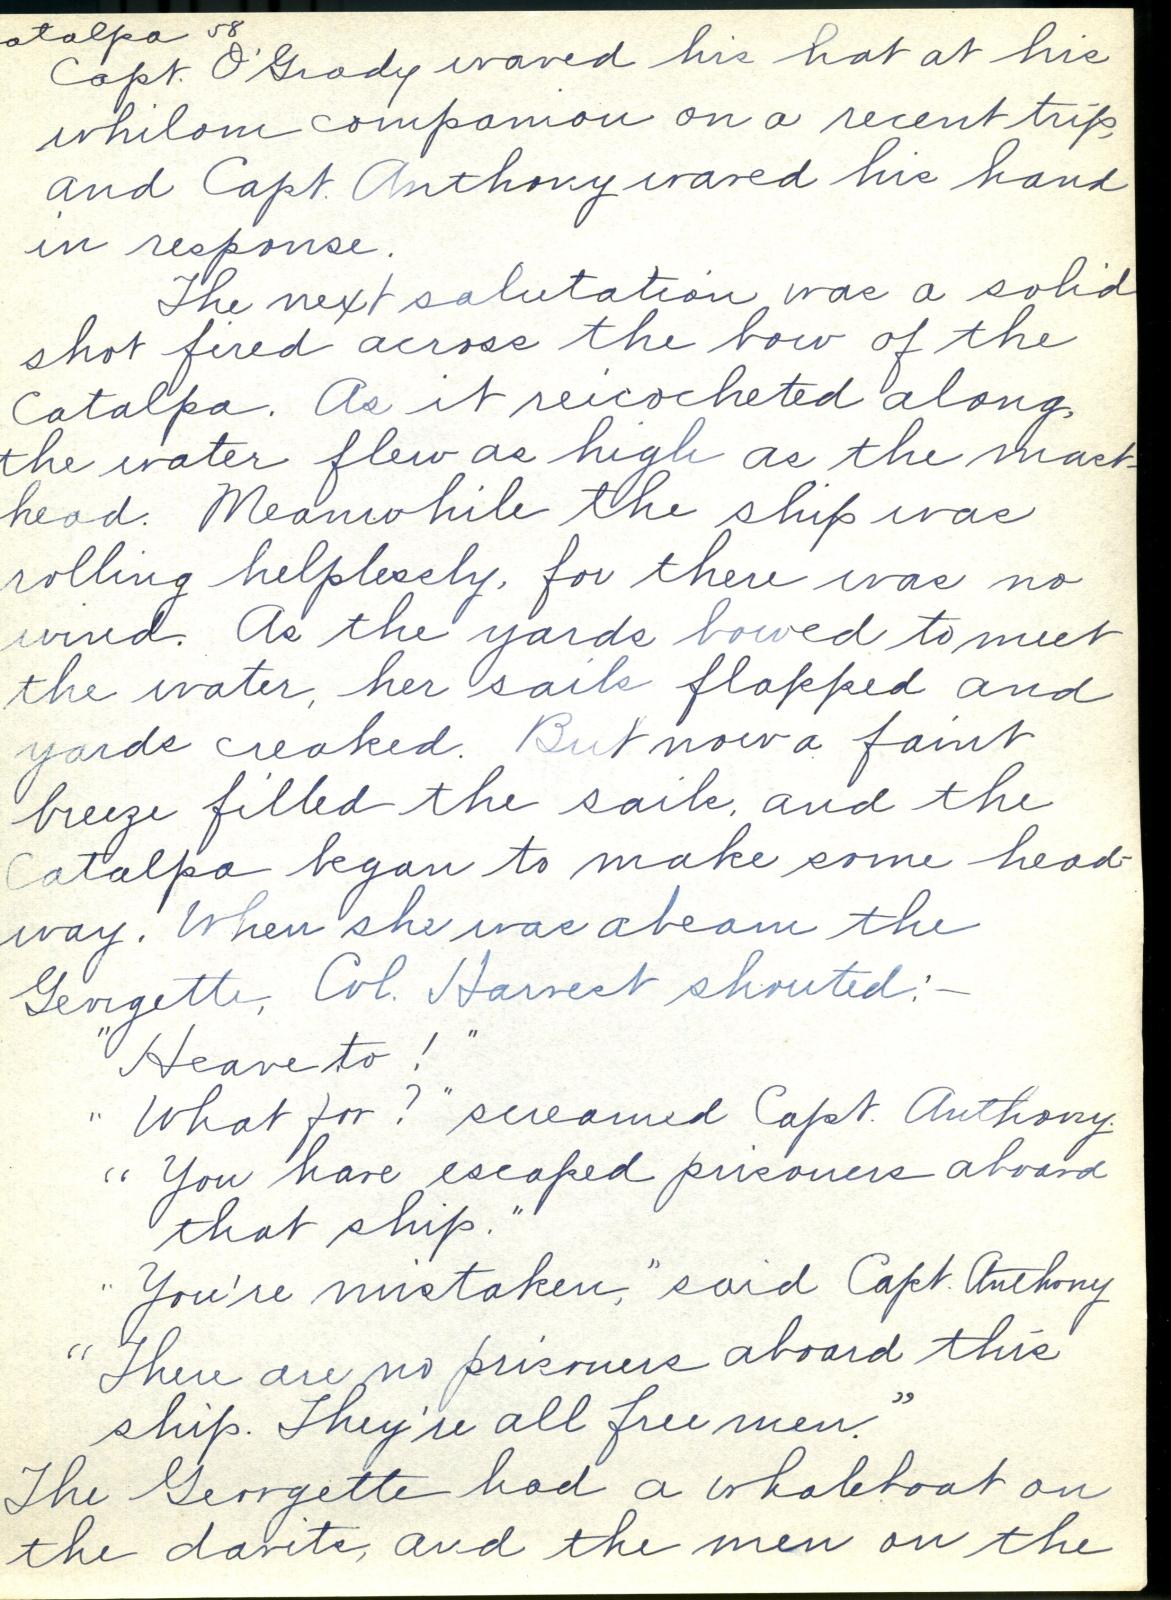 atalpa 58
Capt. O'Grady waved his hat at his
whilom companion on a recent trip,
and Capt. Anthony waved his hand
in response.
The next salutation was a solid
shot fired across the bow of the
Catalpa. As it reicocheted along,
the water flew as high as the mast-
head. Meanwhile the ship was
rolling helplessly, for there was no
wind. As the yards bowed to meet
the water, her sails flapped and
yards creaked. But now a faint
breeze filled the sails, and the
Catalpa began to make some head-
way. When she was abeam the
Georgette, Col. Harvest shouted:-
"Heave to!"
"What for?" screamed Capt. Anthony.
"You have escaped prisoners aboard
that ship."
"You're mistaken," said Capt. Anthony
"There are no prisoners aboard this
ship. They're all free men."
The Georgette had a whaleboat on
the davits, and the men on the